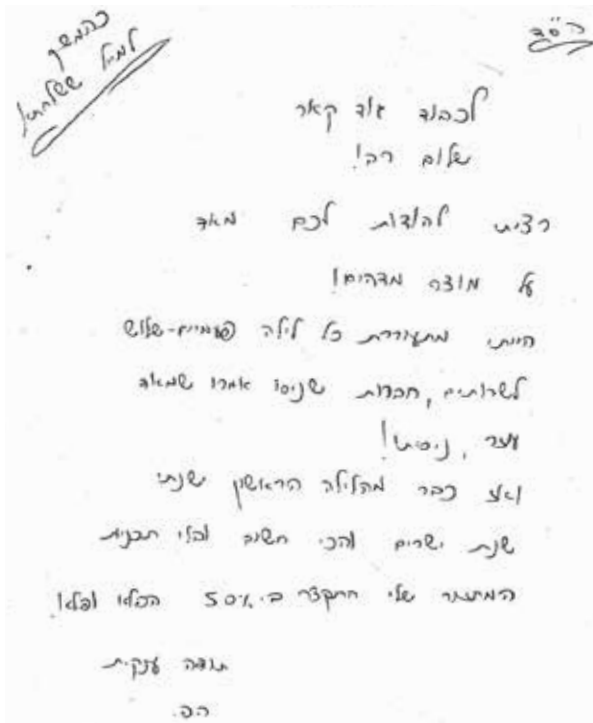 בס"ד
כהמשך
למייל ששלחתי
לכבוד גוד קאר
שלום רב!
רציתי להודות לכם מאד
על מוצר מדהים!
הייתי מתעוררת כל לילה פעמיים-שלוש
לשרותים, חברות שניסו אמרו שמאד
עוזר, ניסיתי!
ואז כבר מהלילה הראשון ישנתי
שנת ישרים והכי חשוב
המחזור שלי התקצר ב-50% הפלא ופלא!
תודה ענקית
ה.פ.